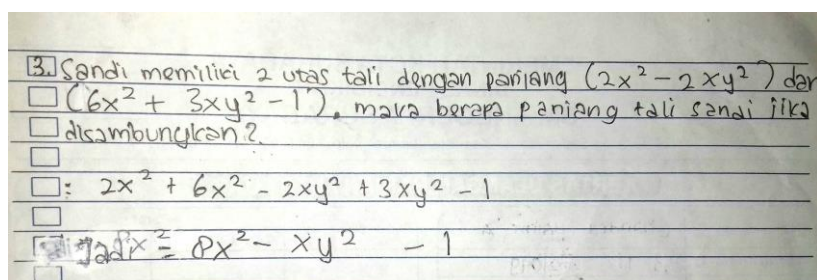 3. Sandi memiliki 2 utas tali dengan panjang (2x² - 2xy²) dan
(6x² + 3xy² - 1), maka berapa panjang tali sandi jika
disambungkan?
: 2x² + 6x² - 2xy² + 3xy² - 1
Jadi = 8x² - xy² - 1